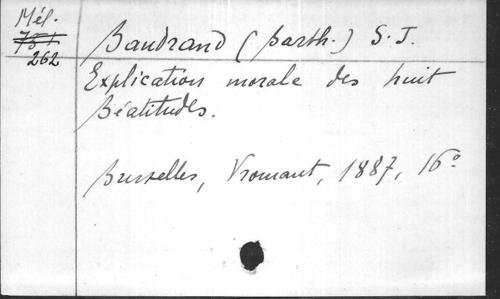 Mél.
751
262
Baudrand (Barth.) S.J.
Explication morale des huit
Béatitudes.
Bruxelles, Vromant, 1887, 16º